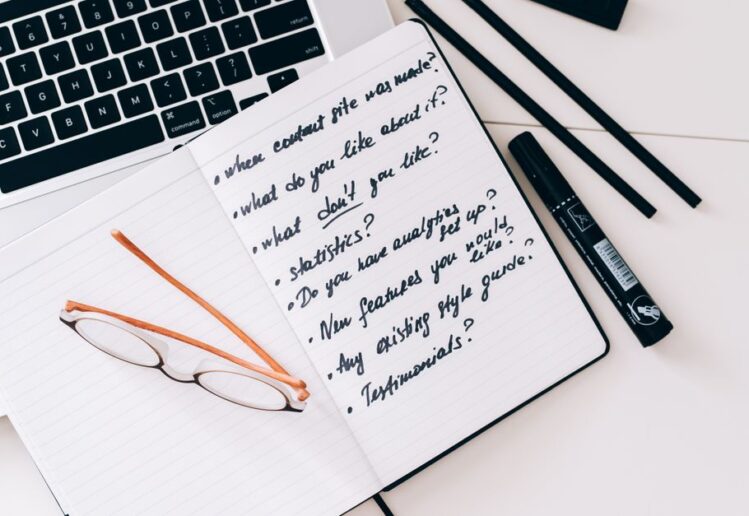 • when contant site was made?
• what do you like about it?
• what don't you like?
• statistics?
• Do you have analytics
set up?
• New features you would
like?
• Any existing style guide?
• Testimonials?
6
7
8
9
return
Y
U
I
O
P
G
H
J
K
L
C
V
B
N
M
command
option